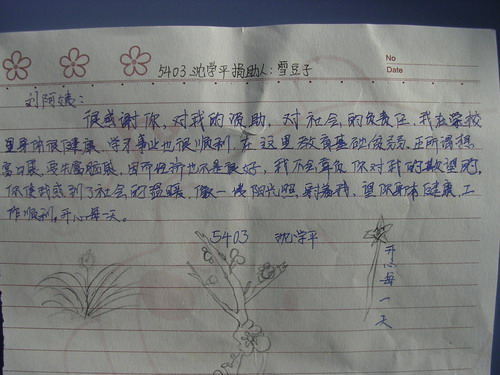 5403 沈学平捐助人:雪豆子
No
Date
刘阿姨:
很感谢你,对我的资助,对社会的负责任,我在学校
里身体很健康,学习事业也很顺利,在这里教育基础很薄弱,正所谓想
富口袋,要先富脑袋,因而经济也不是很好,我不会辜负你对我的期望的,
你使我感到了社会的温暖,像一缕阳光照射着我,望你身体健康,工
作顺利,开心每一天。
5403 沈学平
开心每一天